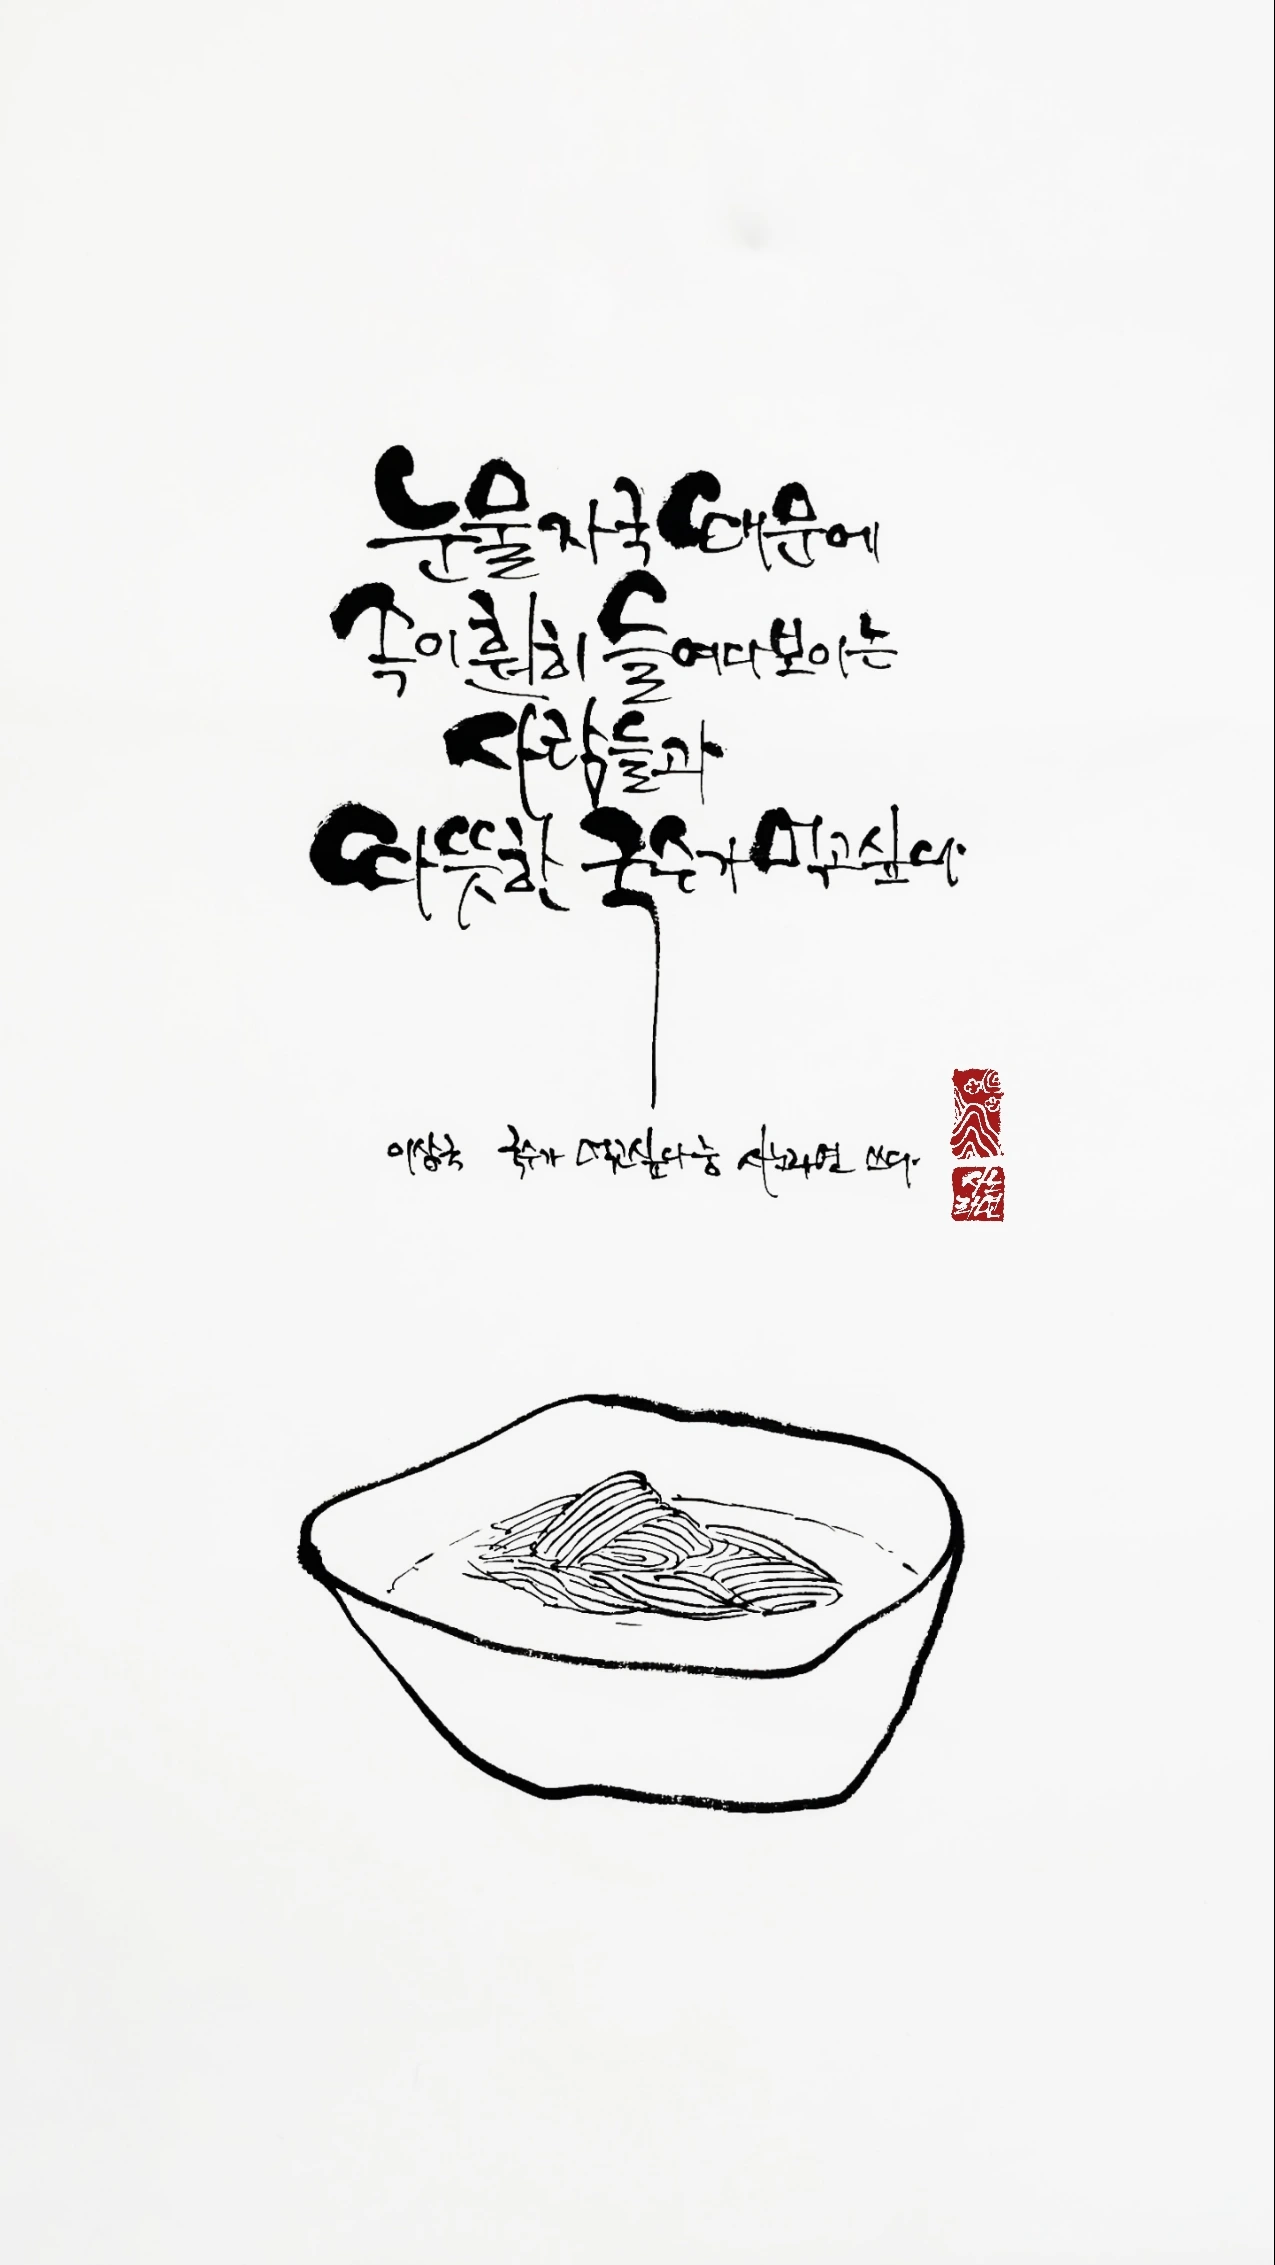 눈물자국 때문에
속이 훤히 들여다보이는
사람들과
따뜻한 국수가 먹고싶다
이상국 국수가 먹고싶다 중 쓰다